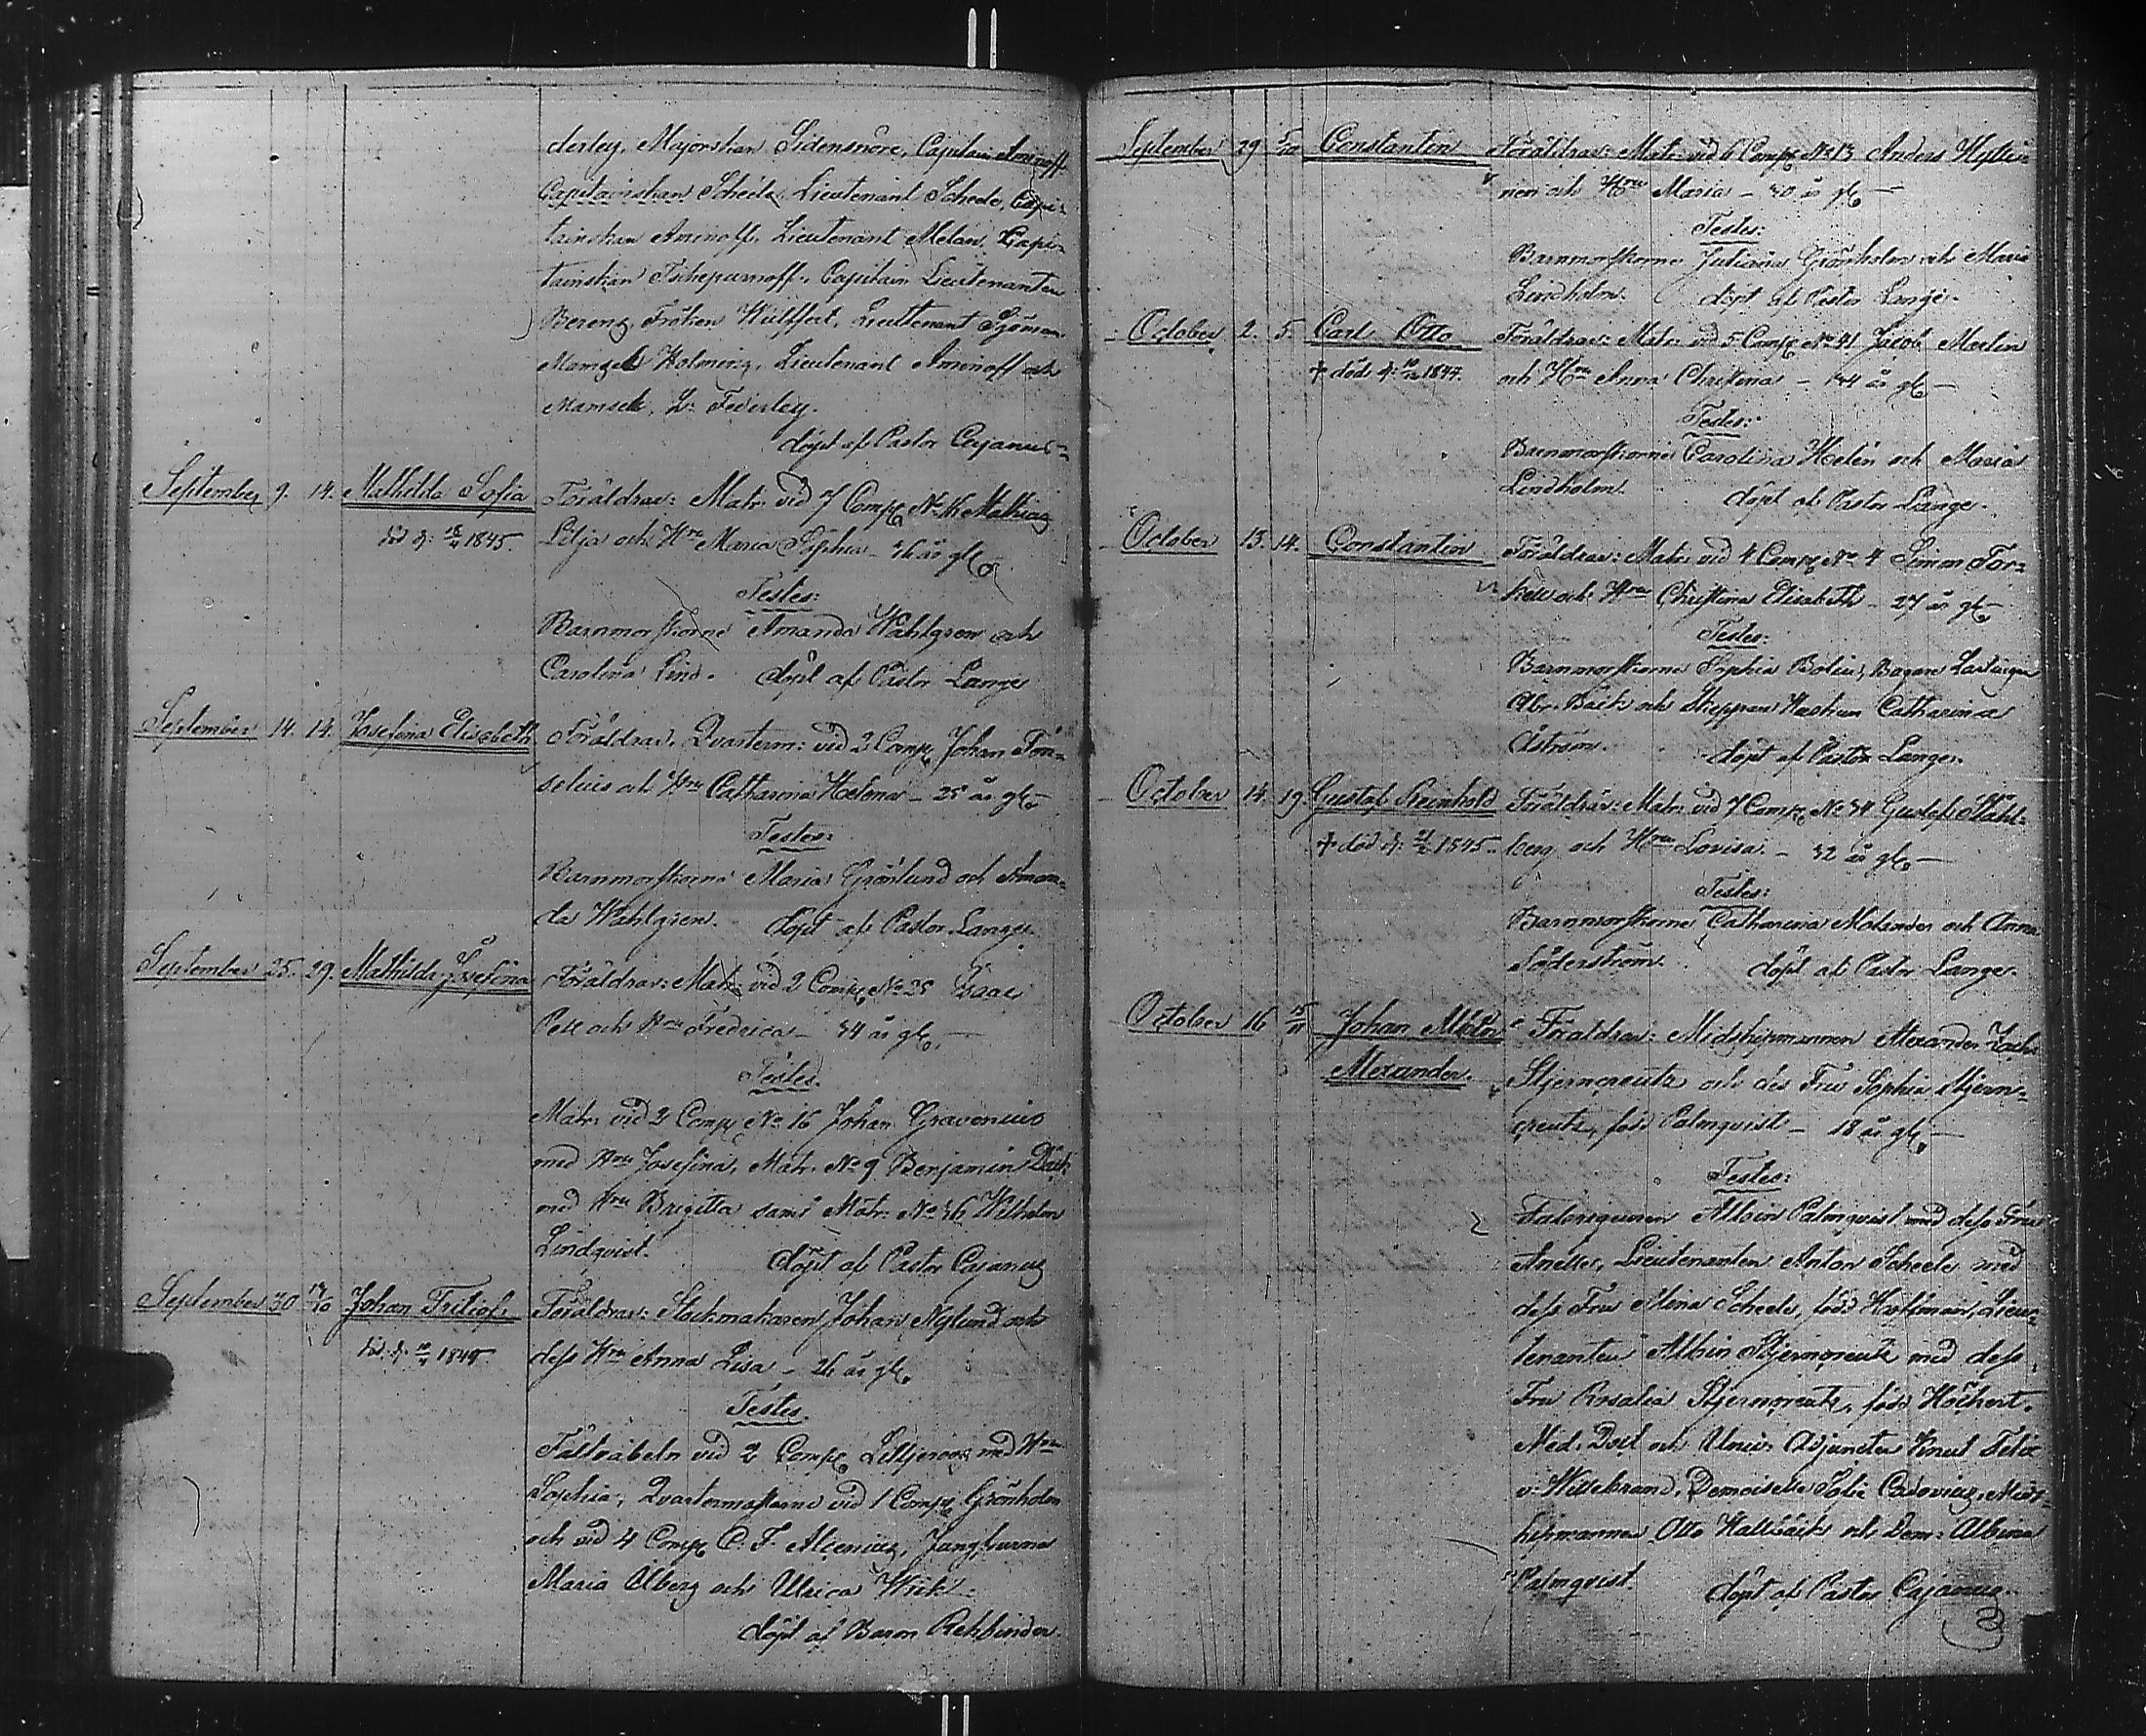 derley, Majorskan Sidensnöre, Capitain Aminoff
Capitainskan Scheele, Lieutenant Scheele, Capi-
tainskan Aminoff, Lieutenant Melan, Capi-
tainskan Tschepurnoff, Capitain Lieutenanten
Berens, Fröken Wulffert, Lieutenant Sjöman
Mamsell Holming, Lieutenant Aminoff och
Mamsell L: Federley.
döpt af Pastor Cajanus
September 9. 14. Mathilda Sofia Föräldrar: Matr. vid 7 Comp. No 16 Mathias
död d: 1845. Lilja och Hru Maria Sophia - 36 år gl.
Testes:
Barnmorskorne Amanda Wahlgren och
Carolina Lind. döpt af Pastor Lange
September 14. 14. Josefina Elisabeth Föräldrar: Qvarterm: vid 2 Comp. Johan
selius och Hru Catharina Helena - 25 år gl.
Testes:
Barnmorskorna Maria Grönlund och Aman-
da Wahlgren. döpt af Pastor Lange.
September 25. 29. Mathilda Josefina Föräldrar: Matr. vid 2 Comp. No 25 Isaac
Pell och Hru Fredrica - 34 år gl.
Testes.
Matr. vid 2 Comp. No 16 Johan Gravenius
med Hru Josefina, Matr. No 9 Benjamin Bäck
med Hru Brigitta samt Matr. No 36 Wilhelm
Lindqvist. döpt af Pastor Cajanus
September 30 Johan Fritiof Föräldrar: Stockmakaren Johan Nylund och
död d: dess Hru Anna Lisa - 26 år gl.
Testes.
Fältväbeln vid 2 Comp. Liljeroos med Hru
Sophia, Qvartermästarne vid 1 Comp. Grönholm
och vid 4 Comp. C. F. Alcenius, Jungfrurna
Maria Öberg och Ulrica Wiik.
döpt af Baron Rehbinder.
September 29 5/10 Constantin Föräldrar: Matr. vid 6 Comp. No 13 Anders Hytti-
nen och Hru Maria - 30 år gl.
Testes:
Barnmorskorne Juliana Grönholm och Maria
Lindholm. döpt af Pastor Lange.
October 2. 5. Carl Otto Föräldrar: Matr. vid 5 Comp. No 41 Jacob Martin
† död d: och Hru Anna Christina - 44 år gl.
Testes:
Barnmorskorne Carolina Helén och Maria
Lindholm. döpt af Pastor Lange.
October 13. 14. Constantin Föräldrar: Matr. vid 4 Comp. No 4 Simon Tor-
kell och Hru Christina Elisabeth - 27 år gl.
Testes:
Barnmorskorne Sophia Bolin, Bagare Lärlingen
Abr. Bäck och Skeppare Hustrun Catharina
Åström. döpt af Pastor Lange.
October 14. 19 Gustaf Reinhold Föräldrar: Matr. vid 7 Comp. No 34 Gustaf Ståhl-
† död d: 1845. berg och Hru Lovisa. - 32 år gl.
Testes:
Barnmorskorne Catharina Molander och Anna
Söderström. döpt af Pastor Lange.
October 16 15/11 Johan Föräldrar: Midshipmannen Alexander Zach:
Alexander. Stjerncreutz och des Fru Sophia Stjern-
creutz, född Palmqvist - 18 år gl.
Testes:
Fabriqueuren Albin Palmqvist med dess Fru
Anette, Lieutenanten Anton Scheele med
dess Fru Mina Scheele, född Hoffman, Lieu-
tenanten Albin Stjerncreutz med dess
Fru Rosalia Stjerncreutz, född Höckert.
Med. Doct. och Univ: Adjuncten Knut Felix
v. Willebrand, Demoiselle Sofie Cadovius, Mid-
shipmannen Otto Hallbäck och Dem: Albina
Palmqvist. döpt af Pastor Cajanus.